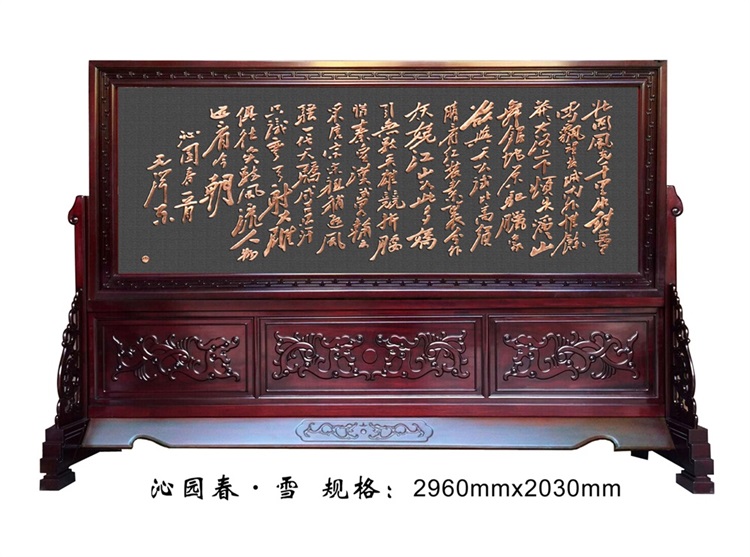 北国风光千里冰封万里
雪飘望长城内外惟余
莽莽大河上下顿失滔滔山
舞银蛇原驰蜡象
欲与天公试比高须
晴日看红装素裹分外
妖娆江山如此多娇
引无数英雄竞折腰
惜秦皇汉武略输文
采唐宗宋祖稍逊风
骚一代天骄成吉思汗
只识弯弓射大雕
俱往矣数风流人物
还看今朝
沁园春雪
毛泽东
沁园春·雪 规格：2960mmx2030mm